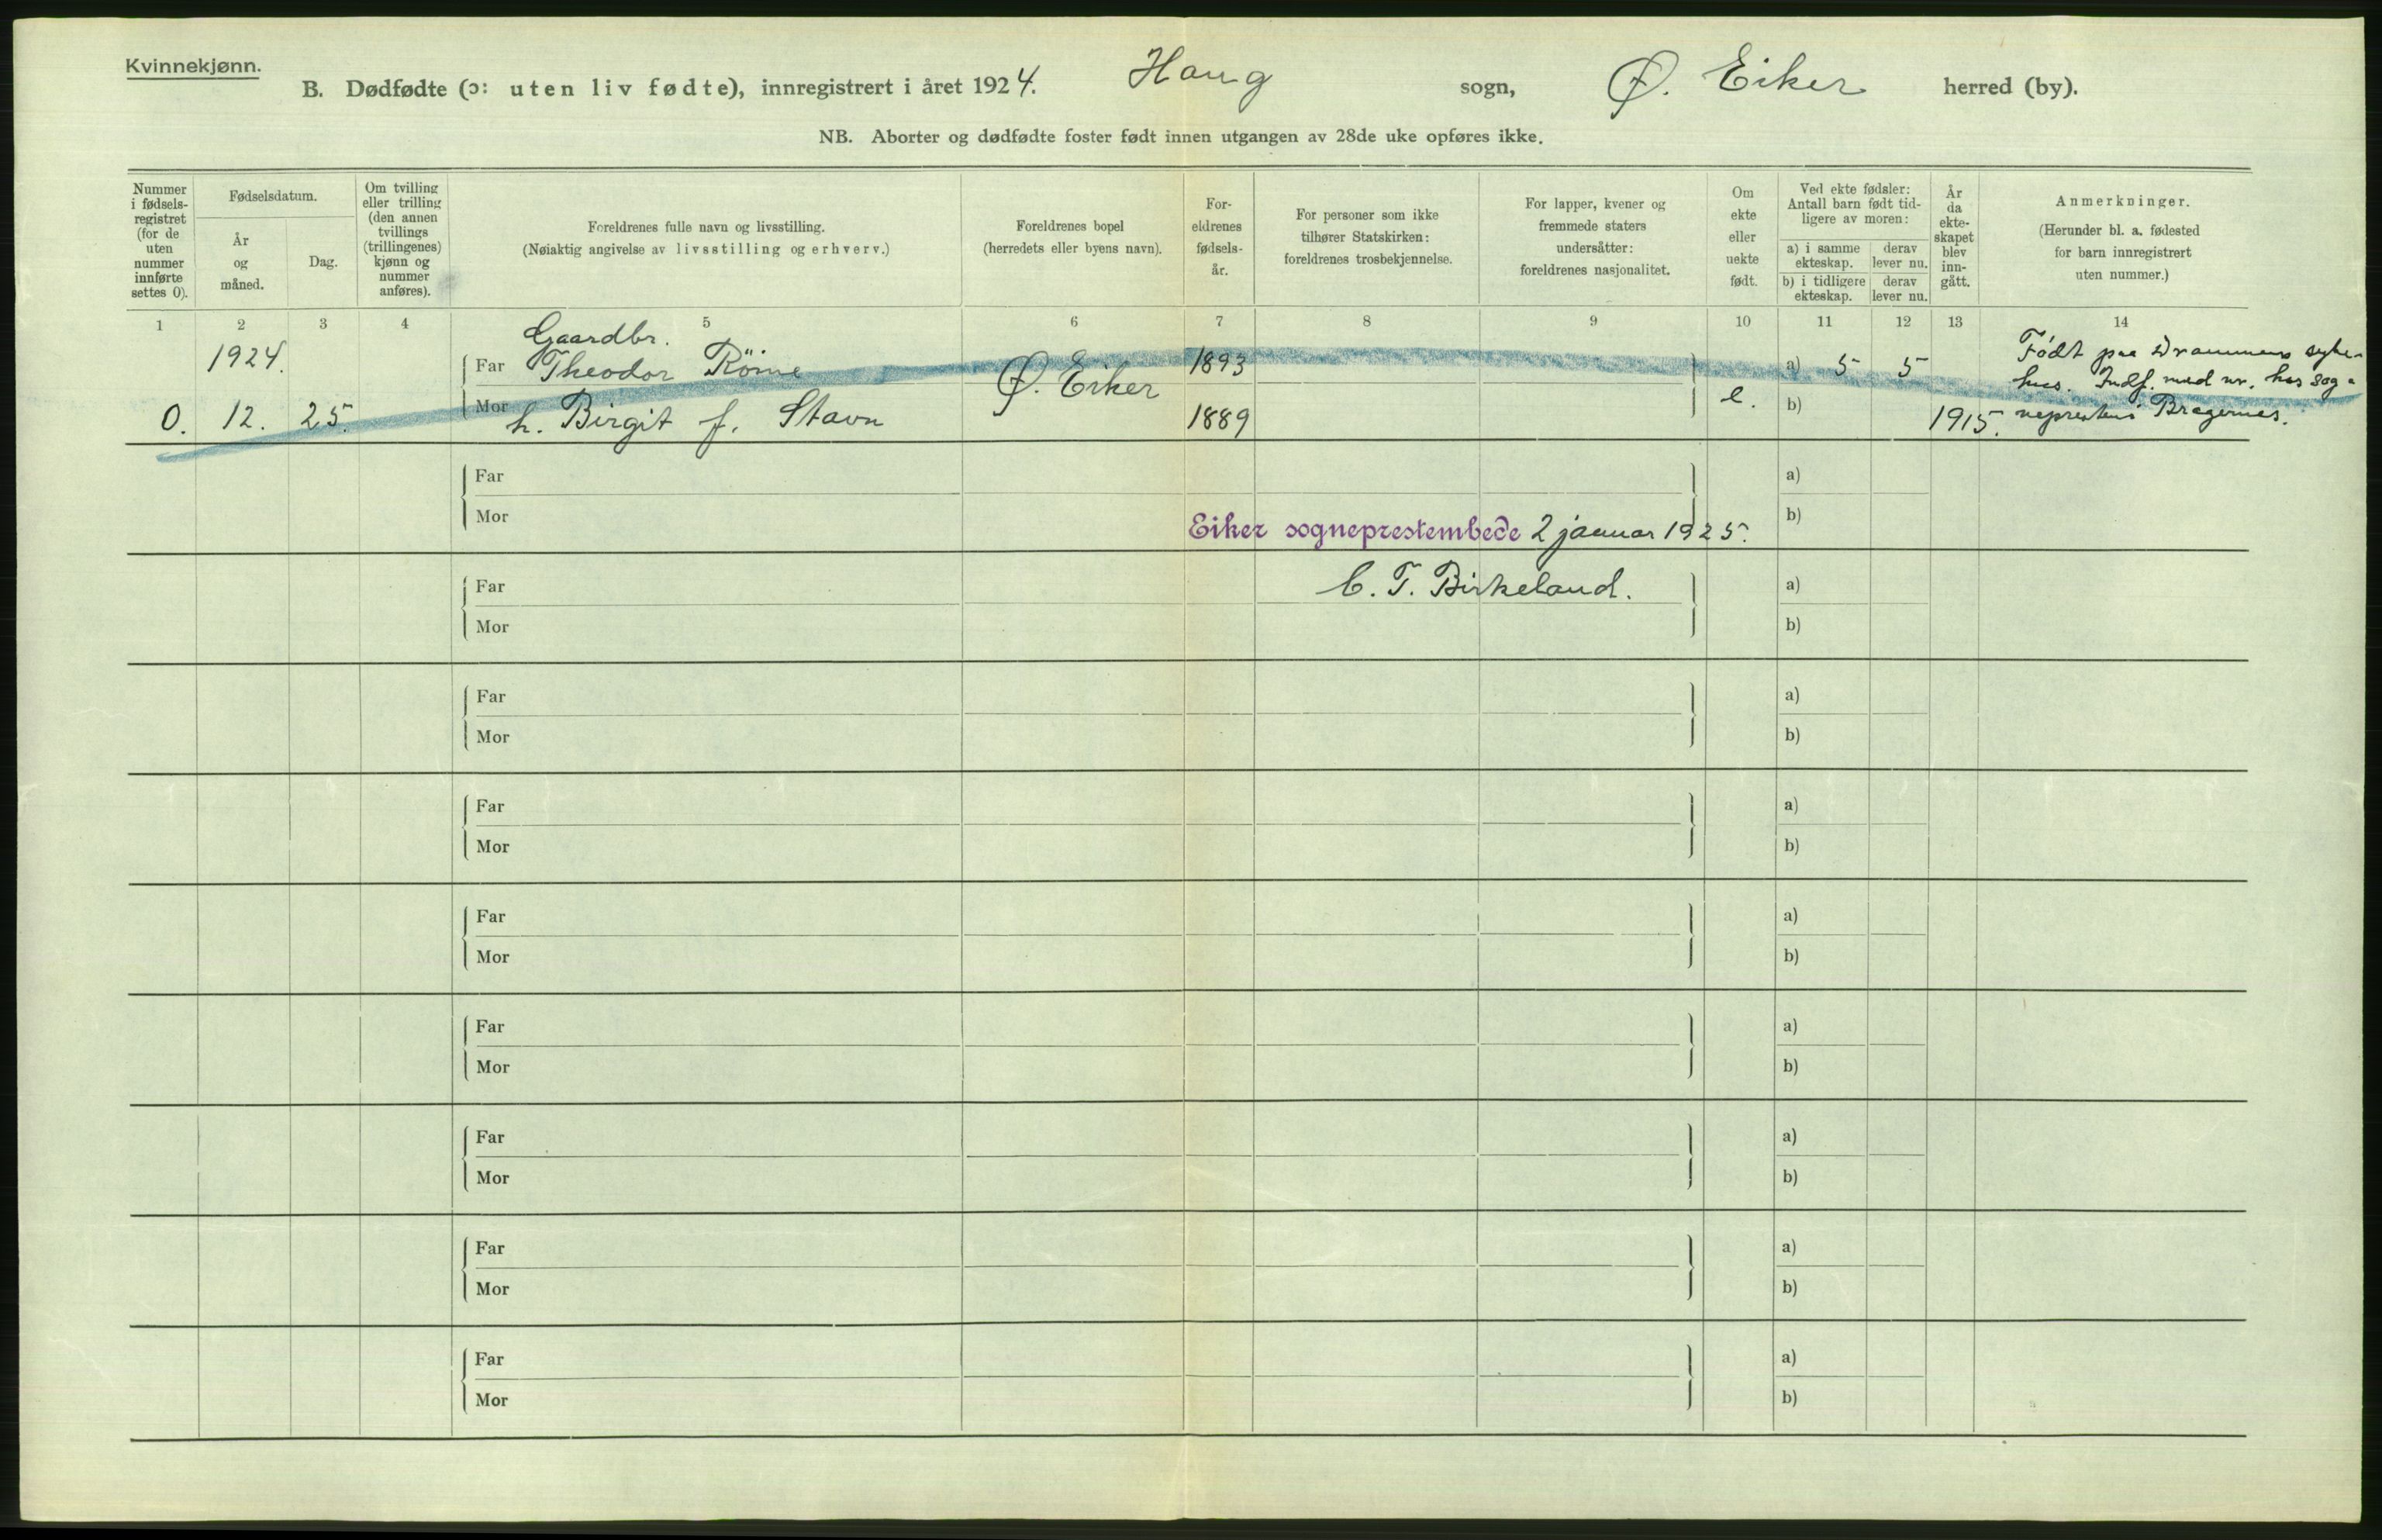 Kvinnekjønn.
B. Dødfødte (ɔ: uten liv fødte), innregistrert i året 1924. Haug sogn, Ø. Eiker herred (by).
NB. Aborter og dødfødte foster født innen utgangen av 28de uke opføres ikke.
Nummer
i fødsels-
registret
(for de
uten
nummer
innførte
settes 0).
Fødselsdatum.
År
og
måned.
Dag.
Om tvilling
eller trilling
(den annen
tvillings
(trillingenes)
kjønn og
nummer
anføres).
Foreldrenes fulle navn og livsstilling.
(Nøiaktig angivelse av livsstilling og erhverv.)
Foreldrenes bopel
(herredets eller byens navn).
For-
eldrenes
fødsels-
år.
For personer som ikke
tilhører Statskirken:
foreldrenes trosbekjennelse.
For lapper, kvener og
fremmede staters
undersåtter:
foreldrenes nasjonalitet.
Om
ekte
eller
uekte
født.
Ved ekte fødsler:
Antall barn født tid-
ligere av moren:
a) i samme
ekteskap.
derav
lever nu.
b) i tidligere
ekteskap.
derav
lever nu.
År
da
ekte-
skapet
blev
inn-
gått.
Anmerkninger.
(Herunder bl. a. fødested
for barn innregistrert
uten nummer.)
1 2 3 4 5 6 7 8 9 10 11 12 13 14
Gaardbr.
1924. Far Theodor 1893 a) 5 5 Født paa Drammens syke-
hus. Indf. med nr. hos sog-
0. 12. 25. Mor h. Birgit f. Stavn Ø. Eiker 1889 e. b) 1915. neprestens Bragernes.
Far a)
Mor b)
Eiker sogneprestembede 2 januar 1925.
Far C. T. Birkeland. a)
Mor b)
Far a)
Mor b)
Far a)
Mor b)
Far a)
Mor b)
Far a)
Mor b)
Far a)
Mor b)
Far a)
Mor b)
Far a)
Mor b)